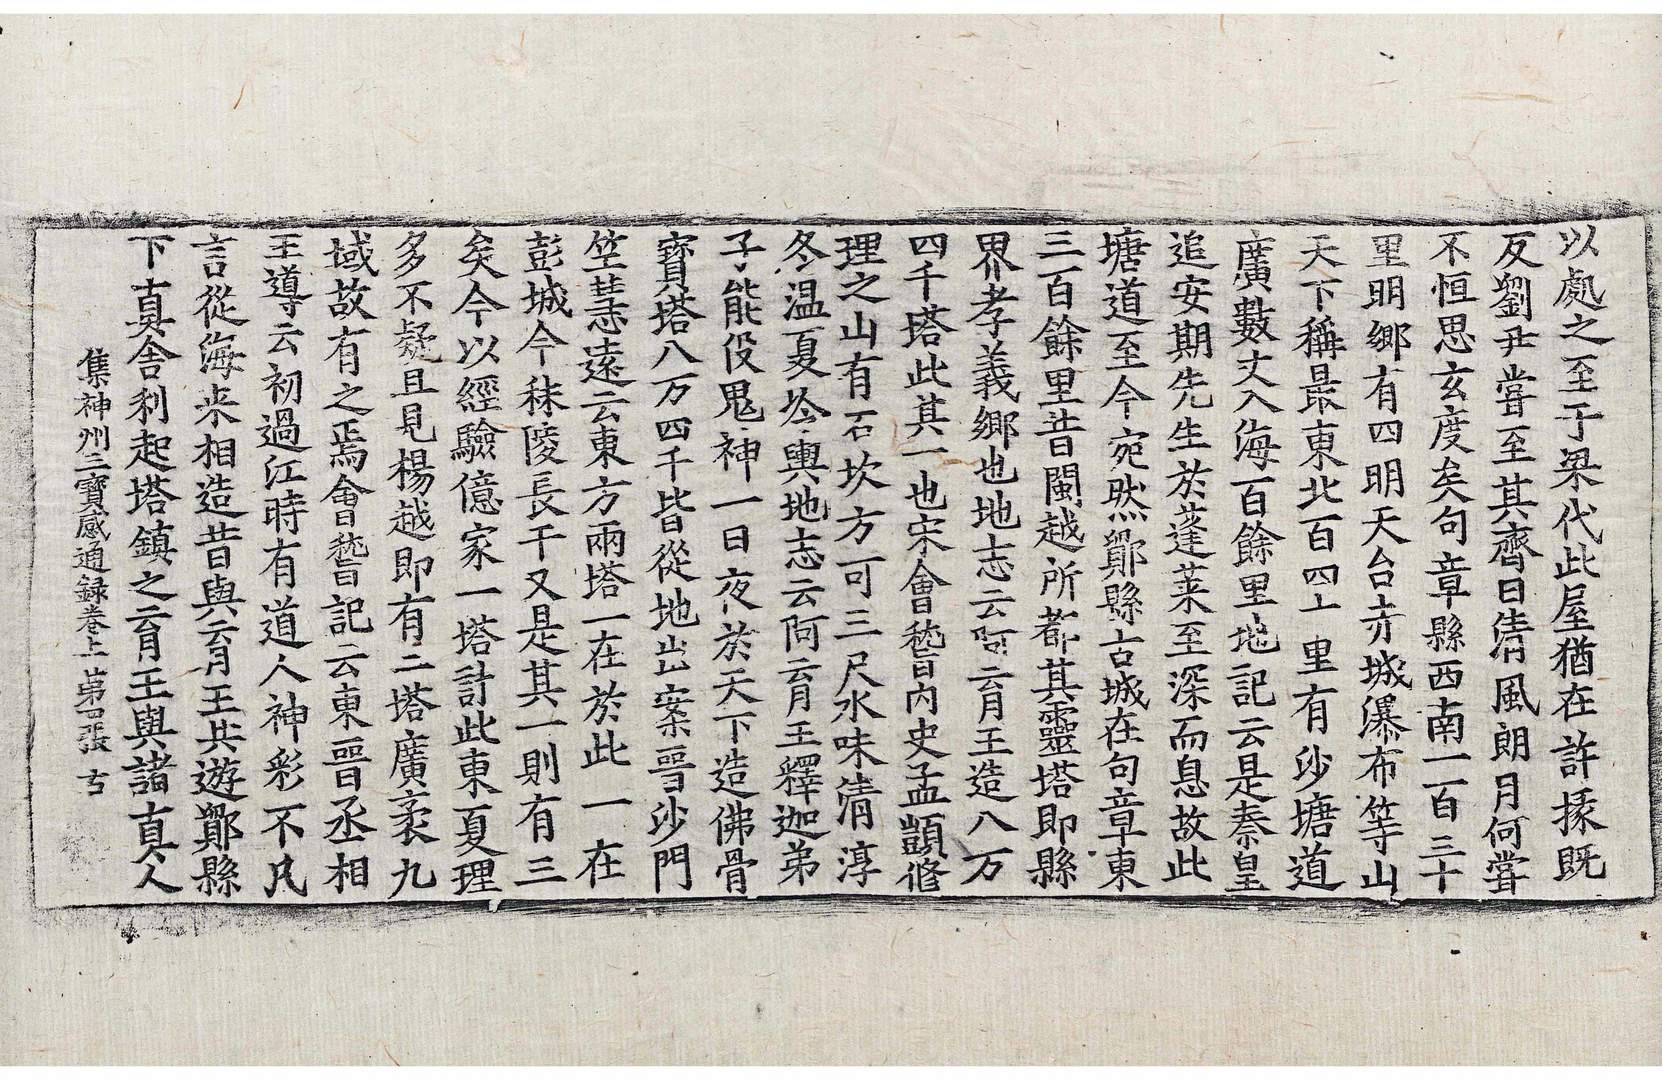 以處之至于梁代此屋猶在許掾既
反劉尹嘗至其齋曰清風朗月何嘗
不恒思玄度矣句章縣西南一百三十
里明鄉有四明天台赤城瀑布等山
天下稱最東北百四上里有沙塘道
廣數丈入海百餘里地記云是秦皇
追安期先生於蓬萊至深而息故此
塘道至今宛然鄮縣古城在句章東
三百餘里昔閩越所都其靈塔即縣
界孝義鄉也地志云阿育王造八万
四千塔此其一也宋會稽內史孟顗修
理之山有石坎方可三尺水味清淳
冬温夏冷輿地志云阿育王釋迦弟
子能役鬼神一日夜於天下造佛骨
寶塔八万四千皆從地出案晉沙門
竺慧遠云東方兩塔一在於此一在
彭城今秣陵長干又是其一則有三
矣今以經驗億家一塔計此東夏理
多不疑且見楊越即有二塔廣袤九
域故有之焉會稽記云東晉丞相
王導云初過江時有道人神彩不凡
言從海来相造昔與育王共遊鄮縣
下真舍利起塔鎮之育王與諸真人
集神州三寶感通録卷上 第四張 古